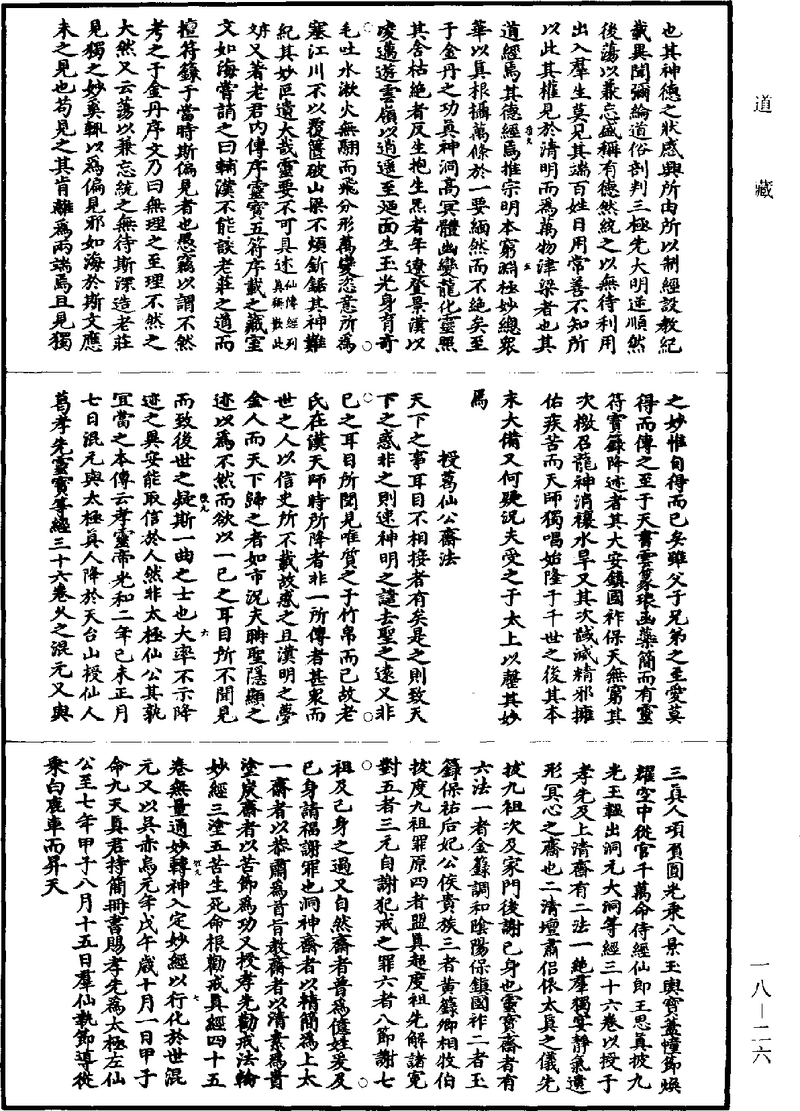 道藏
一八—二六
也其神德之狀感興所由所以制經設教紀
載異聞彌綸道俗剖判三極先大明逆順然
後蕩以兼忘盛稱有德然統之以無待利用
出入羣生莫見其端百姓日用常善不知所
以此其權見於清明而為萬物津梁者也其
道經焉其德經焉推宗明本窮淵極妙總衆
華以真根攝萬條於一要緬然而不絶矣至
于金丹之功真神洞高冥體幽變龍化靈照
其含枯絶者反生抱生炁者年遼登景漢以
凌邁遊雲嶺以逍遥至延面生玉光身育奇
毛吐水漱火無翮而飛分形萬變恣意所為
塞江川不以覆簣破山梁不煩斨鋸其神難
紀其妙叵遺大哉靈要不可具述仙傳經列真稱歎此
妍又著老君内傳序靈寳五符序載之藏室
文如海嘗誚之曰輔漢不能談老莊之道而
檀符籙于當時斯偏見者也愚竊以謂不然
考之于金丹序文乃曰無理之至理不然之
大然又云蕩以兼忘統之無待斯深造老莊
見獨之妙奚輒以為偏見邪如海於斯文應
未之見也苟見之其肯離為兩端焉且見獨
之妙惟自得而已矣雖父子兄弟之至愛莫
得而傳之至于天書雲篆琅函蘂簡而有靈
符寳籙降迹者其大安鎮國祚保天無窮其
次檄召龍神消禳水旱又其次誠滅精邪擁
佑疾苦而天師獨唱始隆于千世之後其本
末大備又何疑況夫受之于太上以罄其妙
焉
授葛仙公齋法
天下之事耳目不相接者有矣是之則致天
下之惑非之則速神明之譴去聖之遠又非
已之耳目所聞見唯質之于竹帛而已故老
氏在漢天師時所降者非一所傳者甚衆而
世之人以信史所不載故惑之且漢明之夢
金人而天下歸之者如市況夫睎聖隱顯之
迹以為不然而欲以一已之耳目所不聞見
而致後世之疑斯一曲之士也大率不示降
迹之異安能取信於人然非太極仙公其孰
宜當之本傳云孝靈帝光和二年己未正月
七日混元與太極真人降於天台山授仙人
葛孝先靈寳等經三十六卷久之混元又與
三真人項頂圓光乘八景玉輿寳蓋幢節焕
耀空中從官千萬命侍經仙郎王思真披九
光玉韞出洞元大洞等經三十六卷以授于
孝先及上清齋有二法一絶羣獨宴静氣遺
形冥心之齋也二清壇肅侣依太真之儀先
拔九祖次及家門後謝已身也靈寳齋者有
六法一者金籙調和陰陽保鎮國祚二者玉
籙保祐后妃公侯貴族三者黄籙卿相牧伯
拔度九祖罪原四者盟真超度祖先解諸寃
對五者三元自謝犯戒之罪六者八節謝七
祖及已身之過又自然齋者普為億姓爰及
已身請福謝罪也洞神齋者以精簡為上太
一齋者以恭肅為首旨教齋者以清素為貴
塗炭齋者以苦節為功又授孝先勸戒法輪
妙經三塗五苦生死命根勸戒真經四十五
卷無量通妙轉神入定妙經以行化於世混
元又以吳赤烏元年戊午歲十月一日甲子
命九天真君持簡冊書賜孝先為太極左仙
公至七年甲子八月十五日羣仙執節導從
乘白鹿車而昇天